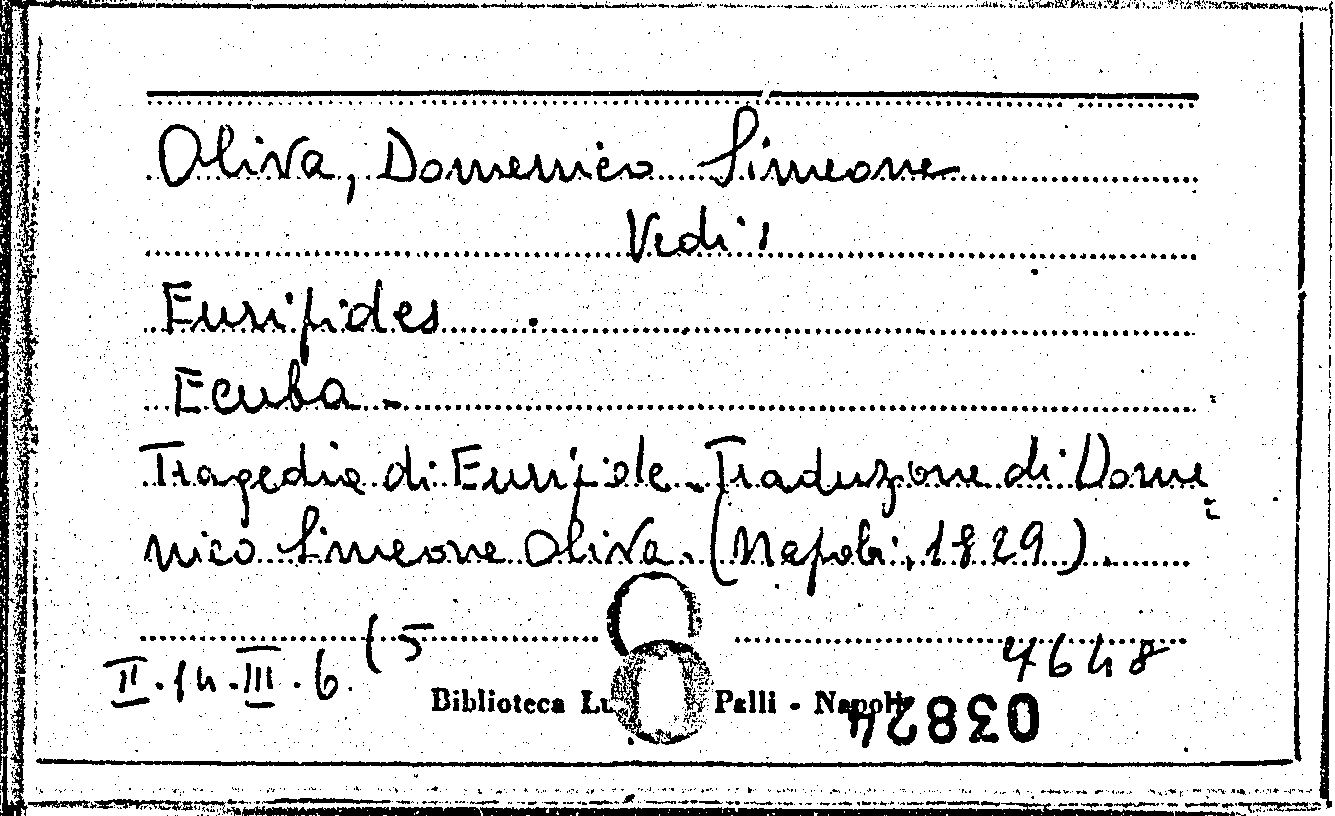 Oliva, Domenico Simeone
Vedi:
Euripides
Ecuba -
Tragedia di Euripide - Traduzione di Dome
nico Simeone Oliva. (Napoli, 1829).
II.14.III.6.(5
4648
Biblioteca Lu Palli - Napoli
03824